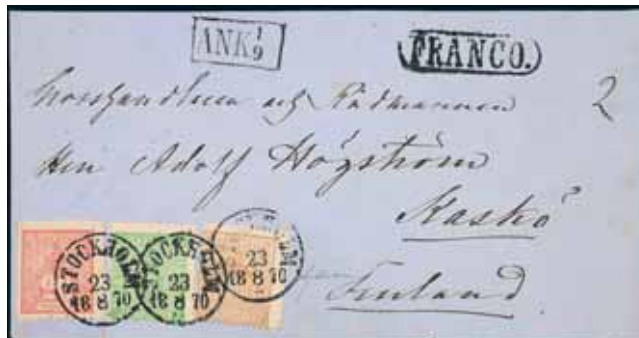 ANK 1/9
FRANCO.
Grosshandlaren och Rådmannen 2
Herr Adolf Högström
Kaskö
Finland
STOCKHOLM
23
18 8 70
STOCKHOLM
23
18 8 70
23
18 8 70